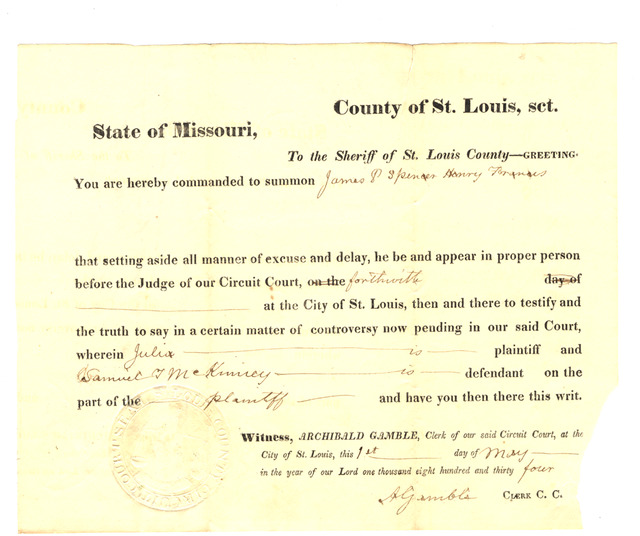 County of St. Louis, sct.
State of Missouri,
To the Sheriff of St. Louis County—GREETING.
You are hereby commanded to summon James P Spencer Henry Francis
that setting aside all manner of excuse and delay, he be and appear in proper person
before the Judge of our Circuit Court, on the forthwith day of
at the City of St. Louis, then and there to testify and
the truth to say in a certain matter of controversy now pending in our said Court,
wherein Julia is plaintiff and
Samuel T McKinney is defendant on the
part of the plaintiff and have you then there this writ.
Witness, ARCHIBALD GAMBLE, Clerk of our said Circuit Court, at the
City of St. Louis, this 1st day of May
in the year of our Lord one thousand eight hundred and thirty four
A Gamble Clerk C. C.